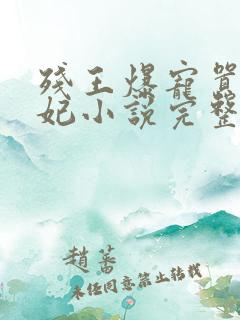 残王爆宠嚣
妃小说完整
趙蕃
未经同意禁止转载